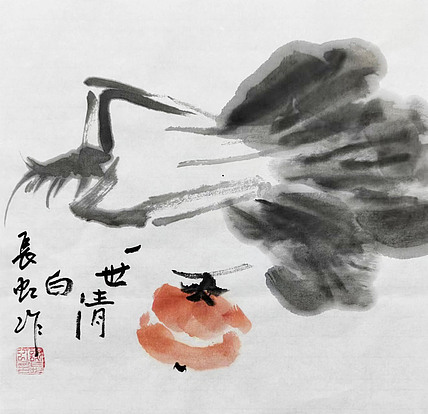 一世清
白
長虹作